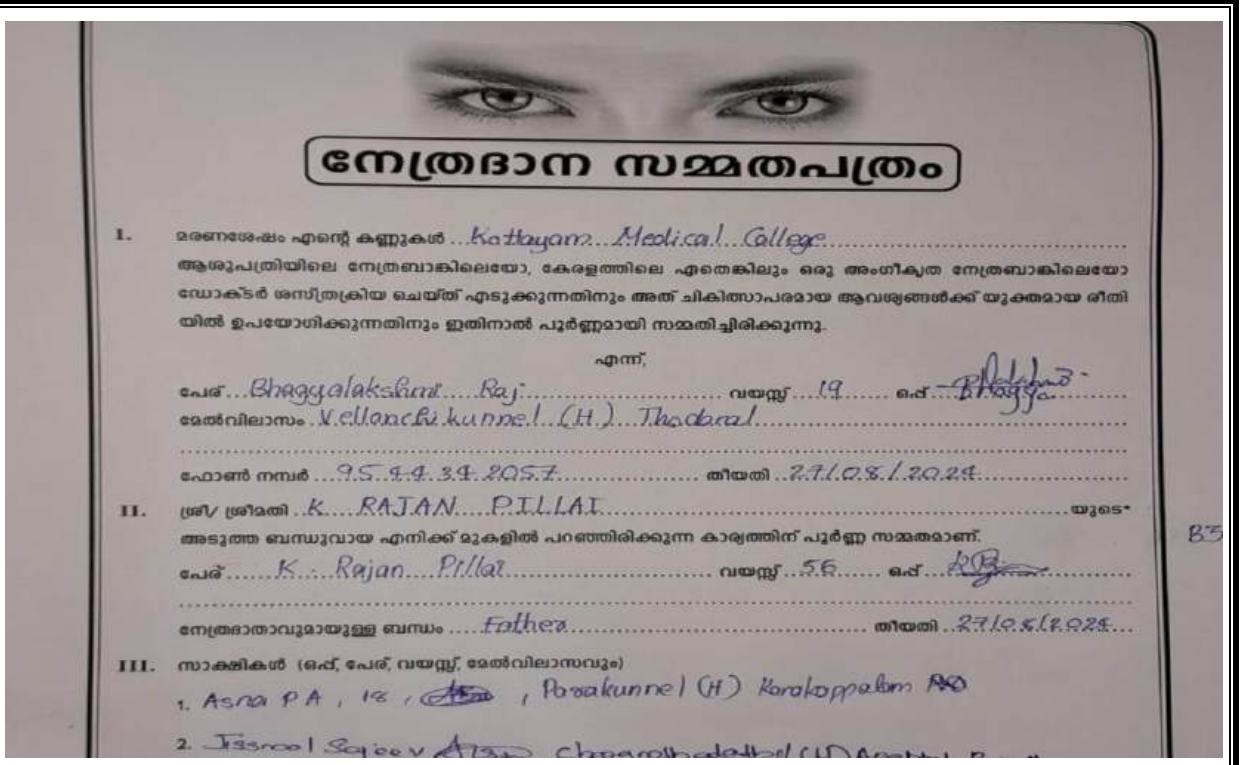 നേത്രദാന സമ്മതപത്രം
I. മരണശേഷം എന്റെ കണ്ണുകൾ ...Kottayam Medical College
ആശുപത്രിയിലെ നേത്രബാങ്കിലെയോ, കേരളത്തിലെ ഏതെങ്കിലും ഒരു അംഗീകൃത നേത്രബാങ്കിലെയോ
ഡോക്ടർ ശസ്ത്രക്രിയ ചെയ്ത് എടുക്കുന്നതിനും അത് ചികിത്സാപരമായ ആവശ്യങ്ങൾക്ക് യുക്തമായ രീതി
യിൽ ഉപയോഗിക്കുന്നതിനും ഇതിനാൽ പൂർണ്ണമായി സമ്മതിച്ചിരിക്കുന്നു.
എന്ന്,
പേര് ...Bhagyalakshmi Raj വയസ്സ് ...19 ഒപ്പ്
മേൽവിലാസം Vellanchikunnel (H)
ഫോൺ നമ്പർ ...9544342057 തീയതി 27/08/2024
II. ശ്രീ/ ശ്രീമതി K RAJAN PILLAI യുടെ*
അടുത്ത ബന്ധുവായ എനിക്ക് മുകളിൽ പറഞ്ഞിരിക്കുന്ന കാര്യത്തിന് പൂർണ്ണ സമ്മതമാണ്. B3
പേര് ...K. Rajan Pillai വയസ്സ് ...56 ഒപ്പ്
നേത്രദാതാവുമായുള്ള ബന്ധം ...Father തീയതി 27/08/2024
III. സാക്ഷികൾ (ഒപ്പ്, പേര്, വയസ്സ്, മേൽവിലാസവും)
1. Asna P A, 18, Parakunnel (H) Karakoppalam
2.